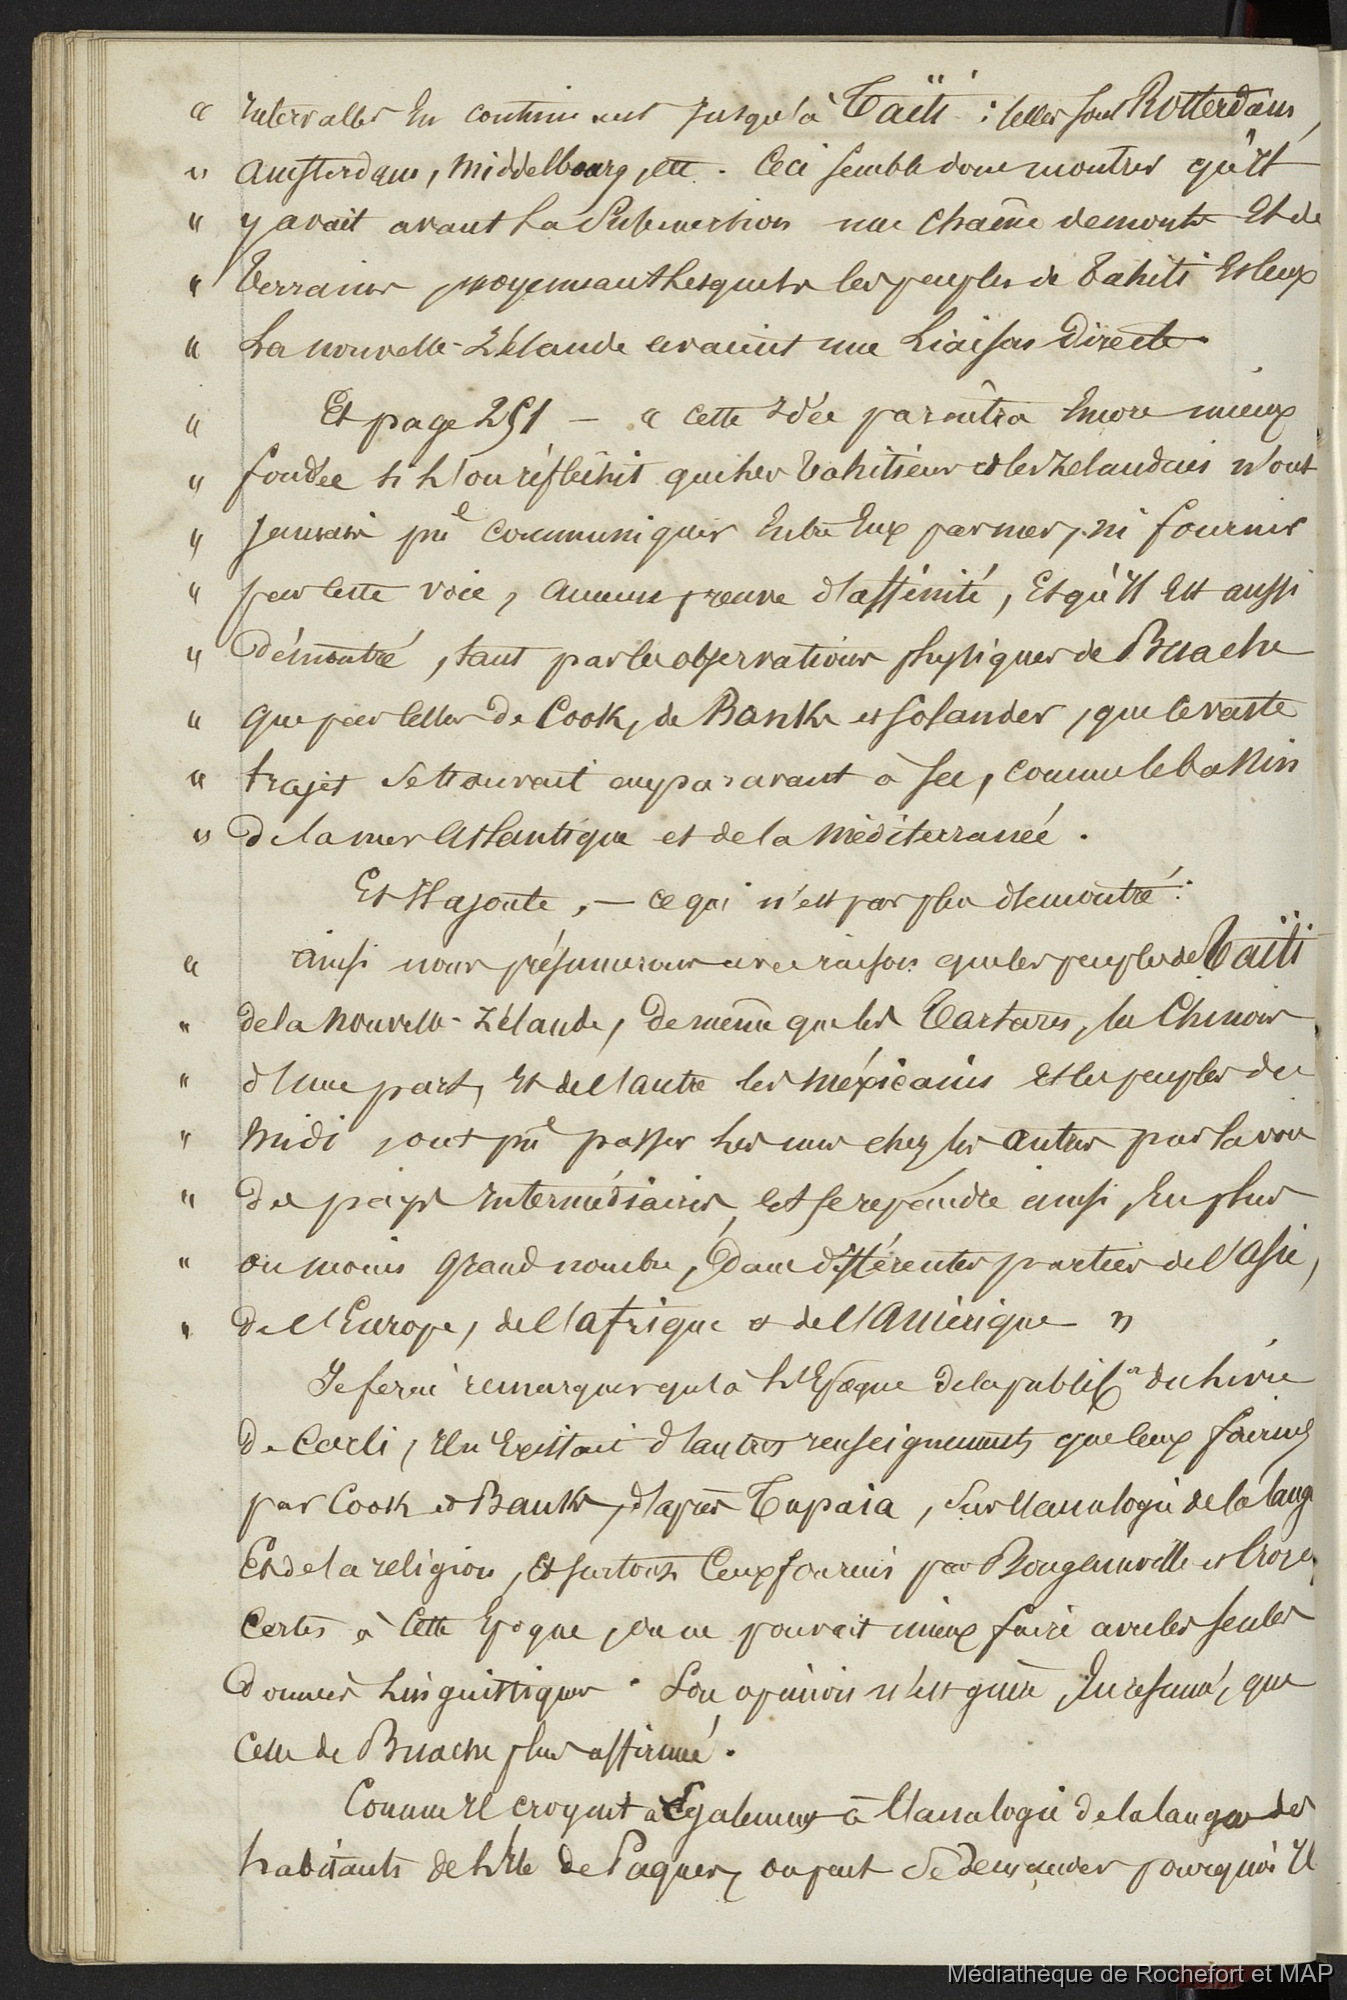 " Intervalles en continuant jusqu'à Taïti : telles sont Rotterdam,
" amsterdam, Middelbourg, etc. Ceci semble donc montrer qu'il
" y avait avant la submersion une chaîne de monts et de
" terrains moyennant lesquels les peuples de Tahiti et ceux
" La nouvelle-Zélande avaient une liaison directe.
" Et page 251 — " cette idée paraîtra encore mieux
" fondée si l'on réfléchit que les Tahitiens et les Zélandais n'ont
" jamais pu communiquer entre eux par mer, ni fournir
" par cette voie, aucune preuve d'affinité, et qu'il est aussi
" démontré, tant par les observations physiques de Buache
" que par celles de Cook, de Banks et Solander, que ce vaste
" trajet se trouvait auparavant à sec, comme le bassin
" de la mer Atlantique et de la Méditerranée.
Et il ajoute, — ce qui n'est pas plus démontré :
" ainsi nous présumerons avec raison que les peuples de Taïti
" de la Nouvelle-Zélande, de même que les Tartares, les Chinois
" d'une part, et de l'autre les Méxicains et les peuples du
" Midi, ont pu passer les uns chez les autres par la voie
" de pays intermédiaires, et se répandre ainsi, en plus
" ou moins grand nombre, dans différentes parties de l'Asie,
" de l'Europe, de l'afrique et de l'Amérique "
Je ferai remarquer qu'à l'Epoque de la publicon du livre
de Carli, il n'existait d'autres renseignements que ceux fournis
par Cook et Banks, d'après Tupaia, sur l'analogie de la lang
Et de la religion, et surtout ceux fournis par Bougainville et Croze
Certes à cette Epoque, on ne pouvait mieux faire avec les seules
données linguistiques. Son opinion n'est guère, en résumé, que
celle de Buache plus affirmée.
Comme il croyait également à l'analogie de la langue des
habitants de l'île de Paques, on peut se demander pourquoi il
Médiathèque de Rochefort et MAP